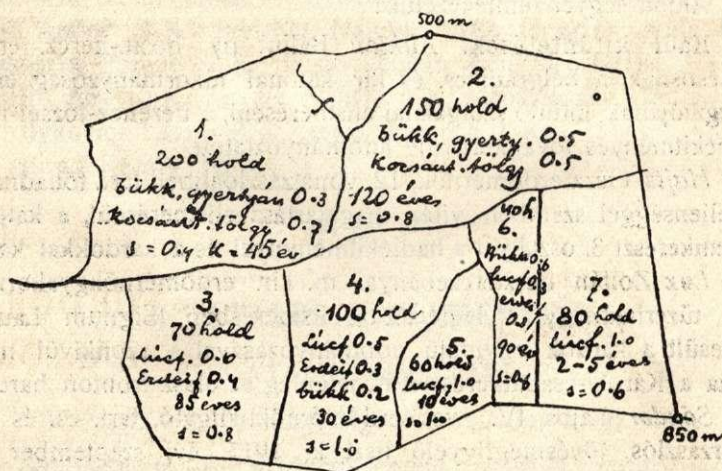 500 m
1.
200 hold
bükk, gyertyán 0.3
Kocsánt. tölgy 0.7
s = 0.4 K = 45 év
2.
150 hold
bükk, gyerty. 0.5
Kocsánt. tölgy 0.5
120 éves
s = 0.8
3.
70 hold
Lucf. 0.6
Erdeif 0.4
85 éves
s = 0.8
4.
100 hold
Lucf 0.5
Erdeif 0.3
bükk 0.2
30 éves
s = 1.0
5.
60 hold
lucf, 1.0
10 éves
s = 1.0
40 h
6.
Bükk 0.6
lucf 0.3
90 év
7.
80 hold
lucf. 1.0
2-5 éves
s = 0.6
850 m